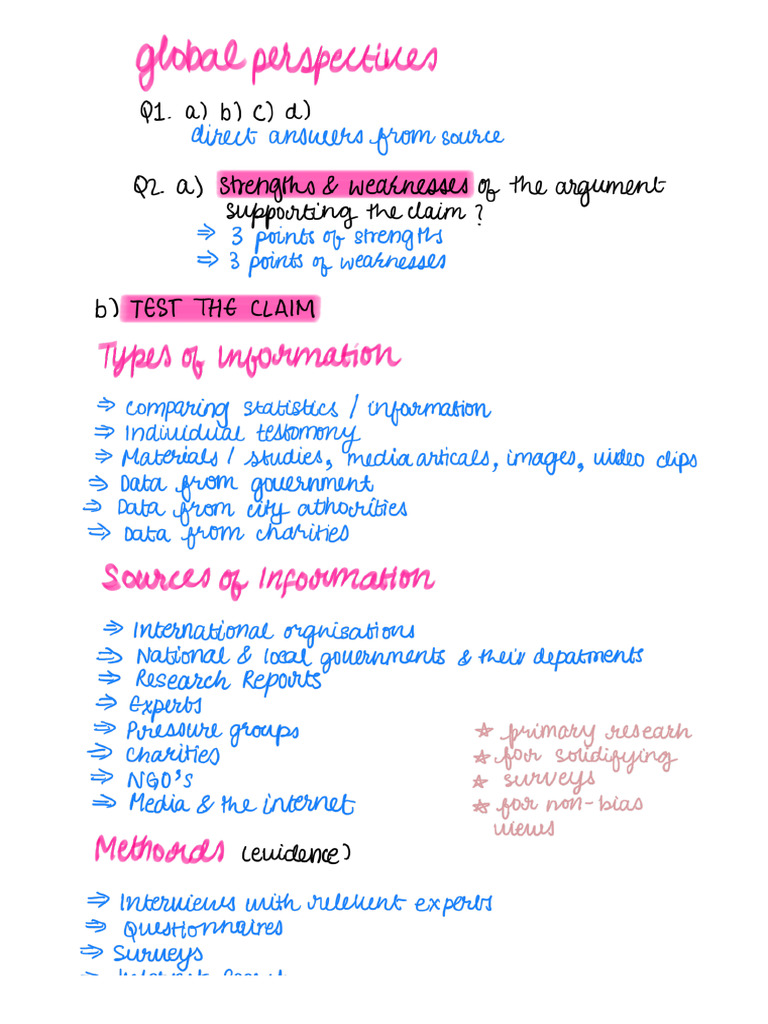 global perspectives
Q1. a) b) c) d)
direct answers from source
Q2. a) strengths & weaknesses of the argument
supporting the claim?
⇒ 3 points of strengths
⇒ 3 points of weaknesses
b) TEST THE CLAIM
Types of Information
⇒ Comparing statistics / information
⇒ Individual testomony
⇒ Materials / studies, media articals, images, video clips
⇒ Data from government
⇒ Data from city athocrities
⇒ Data from charities
Sources of Information
⇒ International orgnisations
⇒ National & local governments & their depatments
⇒ Research Reports
⇒ Experts
⇒ Pressure groups
⇒ Charities
⇒ NGO's
⇒ Media & the internet
☆ primary researh
☆ for solidifying
☆ surveys
☆ for non-bias
views
Methords (evidence)
⇒ Interviews with relevent experts
⇒ Questionnaires
⇒ Surveys